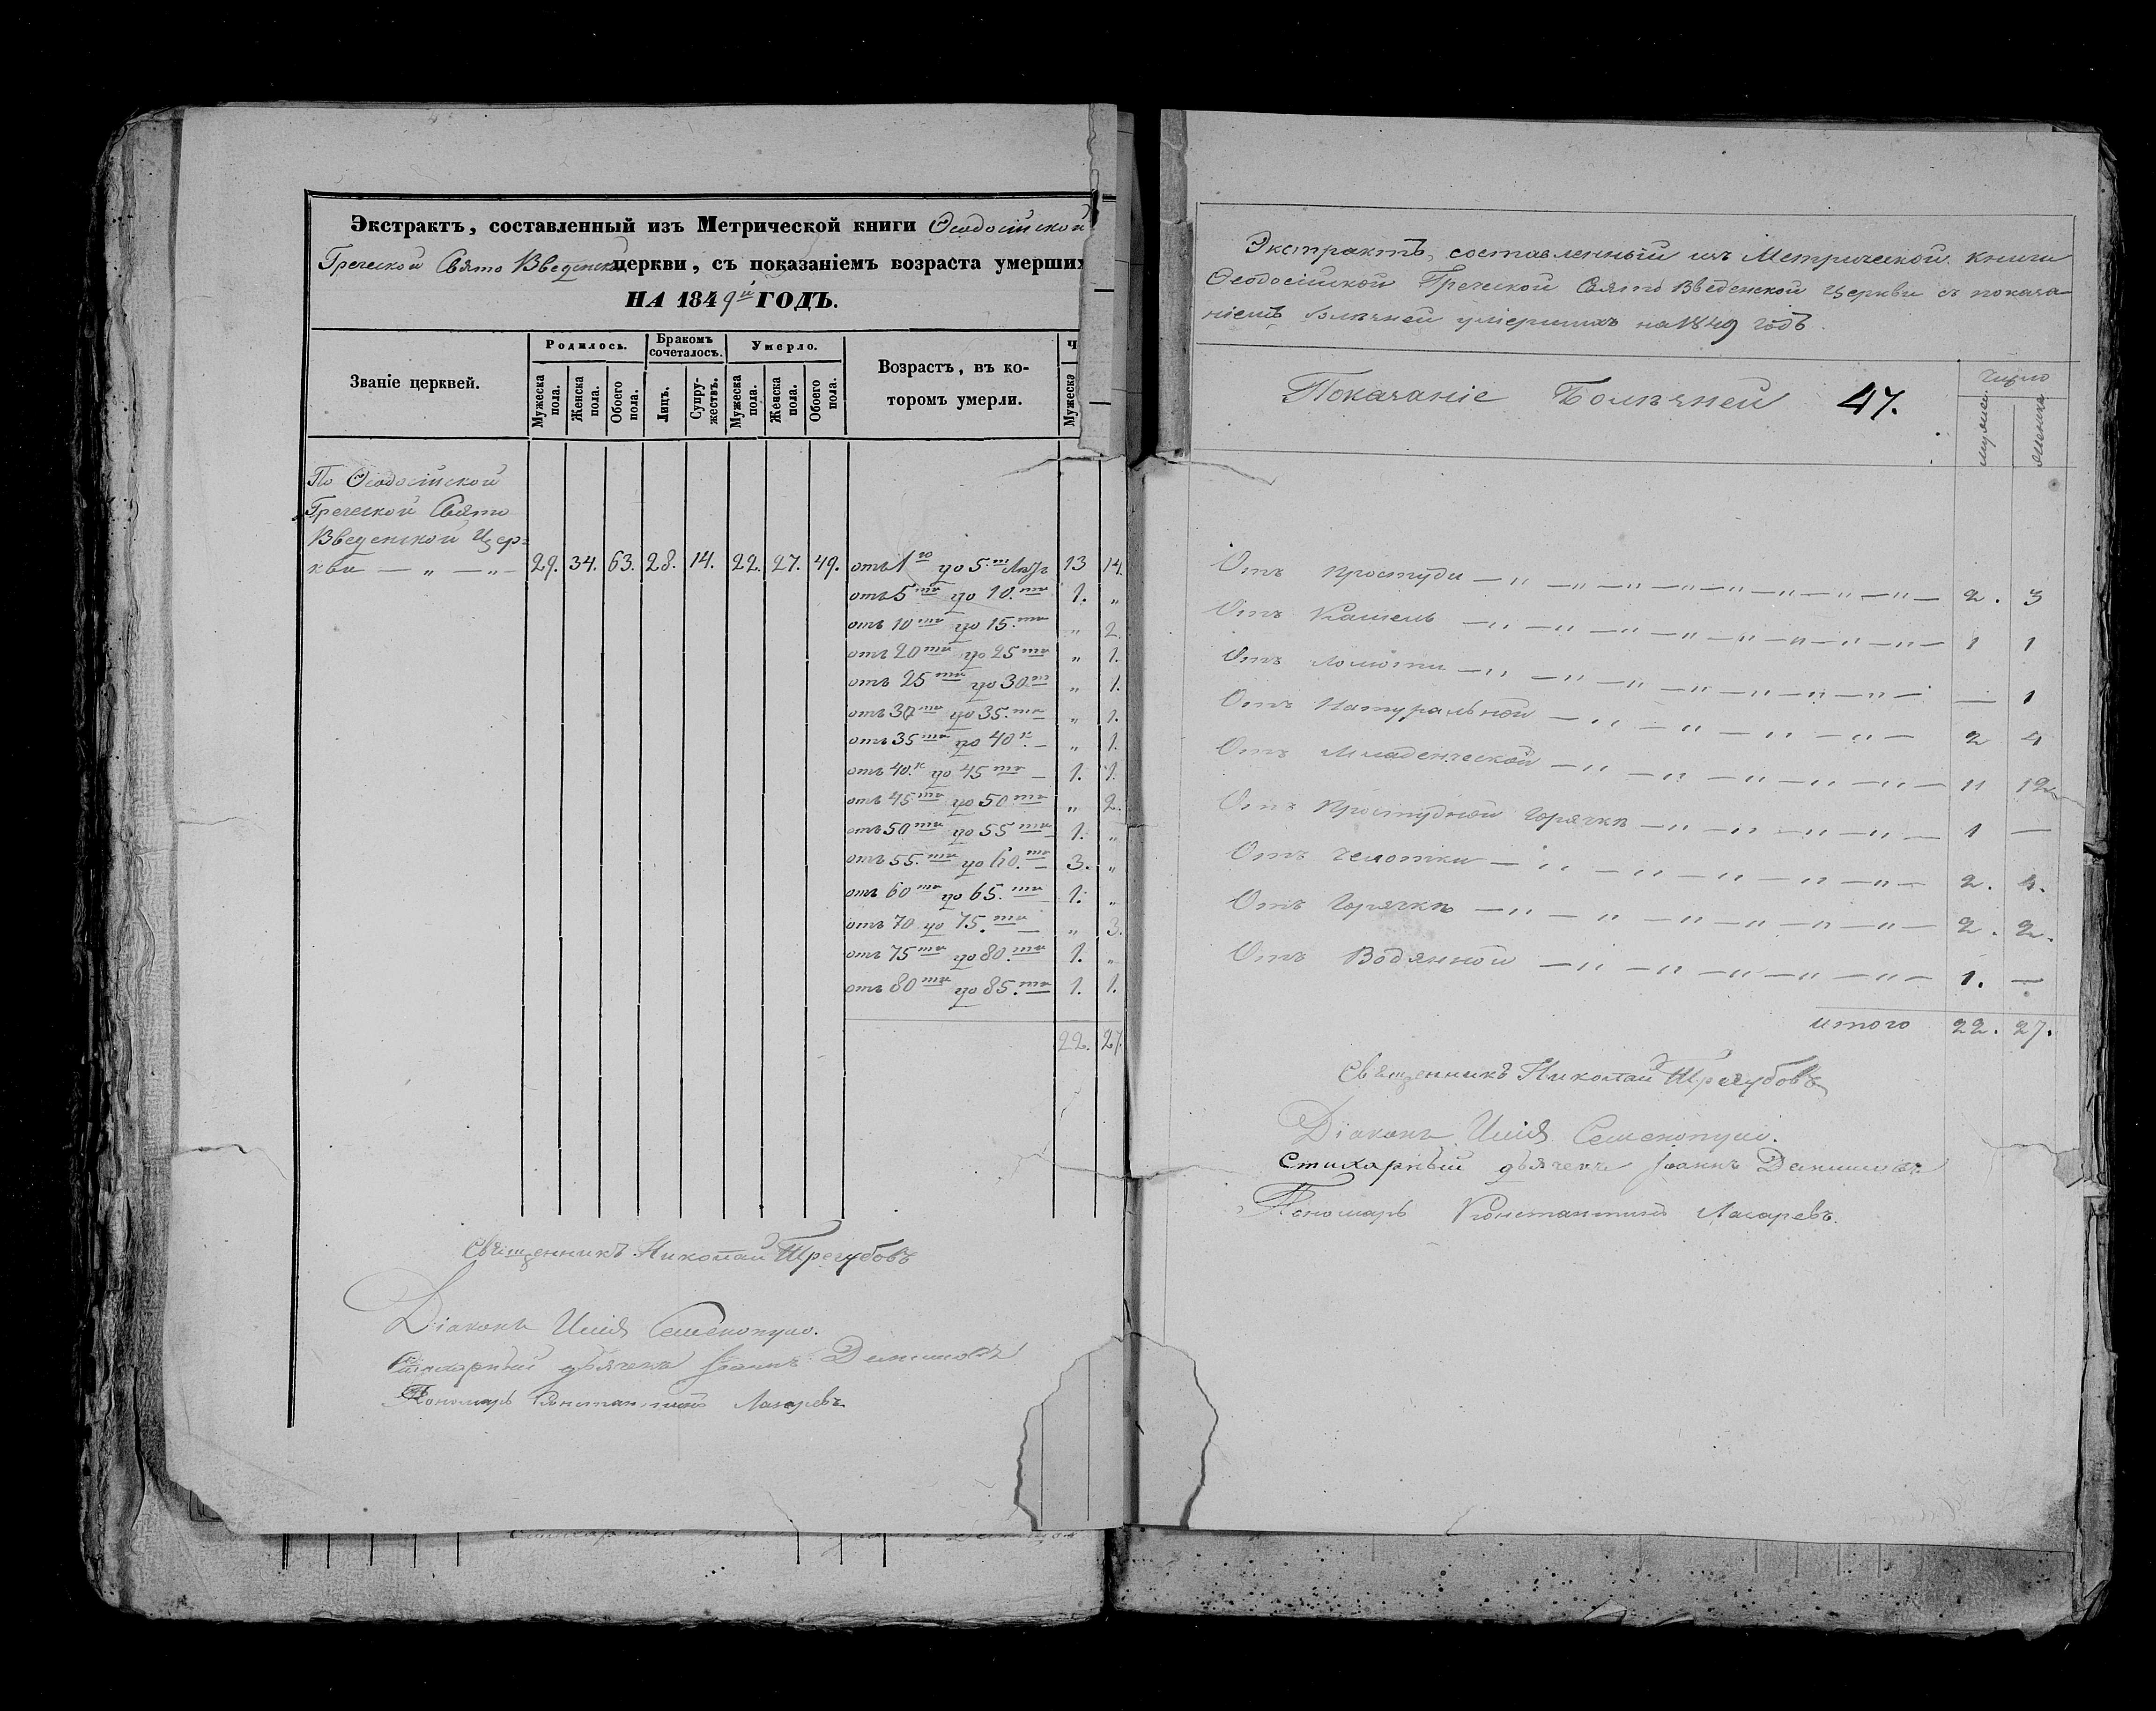 Экстрактъ, составленный изъ Метрической книги Ѳеодосійской
Греческой Свято Введенской церкви, съ показаніемъ возраста умерших
НА 1849й ГОДЪ.
Званіе церквей.
Родилось.
Бракомъ сочеталось.
Умерло.
Возрастъ, въ ко-
торомъ умерли.
Ч
Мужеска пола.
Женска пола.
Обоего пола.
Лицъ.
Супру-
жествъ.
Мужеска пола.
Женска пола.
Обоего пола.
Мужеска
По Ѳеодосійской
Греческой Свято
Введенской Цер=
кви — „ — „ — 29. 34. 63. 28. 14. 22. 27. 49. отъ 1го до 5.ти Лѣтъ 13 14.
отъ 5ти до 10.ти 1. „
отъ 10ти до 15.ти „ 2.
отъ 20ти до 25ти „ 1.
отъ 25ти до 30.ти „ 1.
отъ 30ти до 35.ти „ 1.
отъ 35ти до 40.к — „ 1.
отъ 40.к до 45ти — 1. 1.
отъ 45ти до 50ти „ 2.
отъ 50ти до 55ти 1. „
отъ 55.ти до 60.ти 3. „
отъ 60ти до 65.ти 1. „
отъ 70 до 75.ти — „ 3.
отъ 75ти до 80.ти 1. „
отъ 80ти до 85.ти 1. 1.
22. 27.
Священникъ Николай Трегубовъ
Діаконъ Илія
Стихарный дьячекъ Іоаннъ
Пономарь Константинъ Лазаревъ
Экстрактъ, составленный изъ Метрической книги
Ѳеодосійской Греческой Свято Введенской Церкви съ показа-
ніемъ болѣзней умершихъ на 1849 годъ.
Показаніе Болѣзней 47.
Число
мужес.
женска
Отъ простуди — „ — „ — „ — „ — „ — „ — „ — 2. 3
Отъ Кашель — „ — „ — „ — „ — „ — „ — „ — 1 1
Отъ — „ — „ — „ — „ — „ — „ — — 1
Отъ Натуральной — „ — „ — „ — „ — 2 4
Отъ Младенческой — „ — „ — „ — „ — „ — 11 12
Отъ простудной горячки — „ — „ — „ — „ — 1 —
Отъ чахотки — „ — „ — „ — „ — „ — 2. 4.
Отъ Горячки — „ — „ — „ — „ — „ — „ — 2. 2.
Отъ Водянной — „ — „ — „ — „ — „ — 1. —
итого 22. 27.
Священникъ Николай Трегубовъ
Діаконъ Илія
Стихарный дьячекъ Іоаннъ
Пономарь Константинъ Лазаревъ.